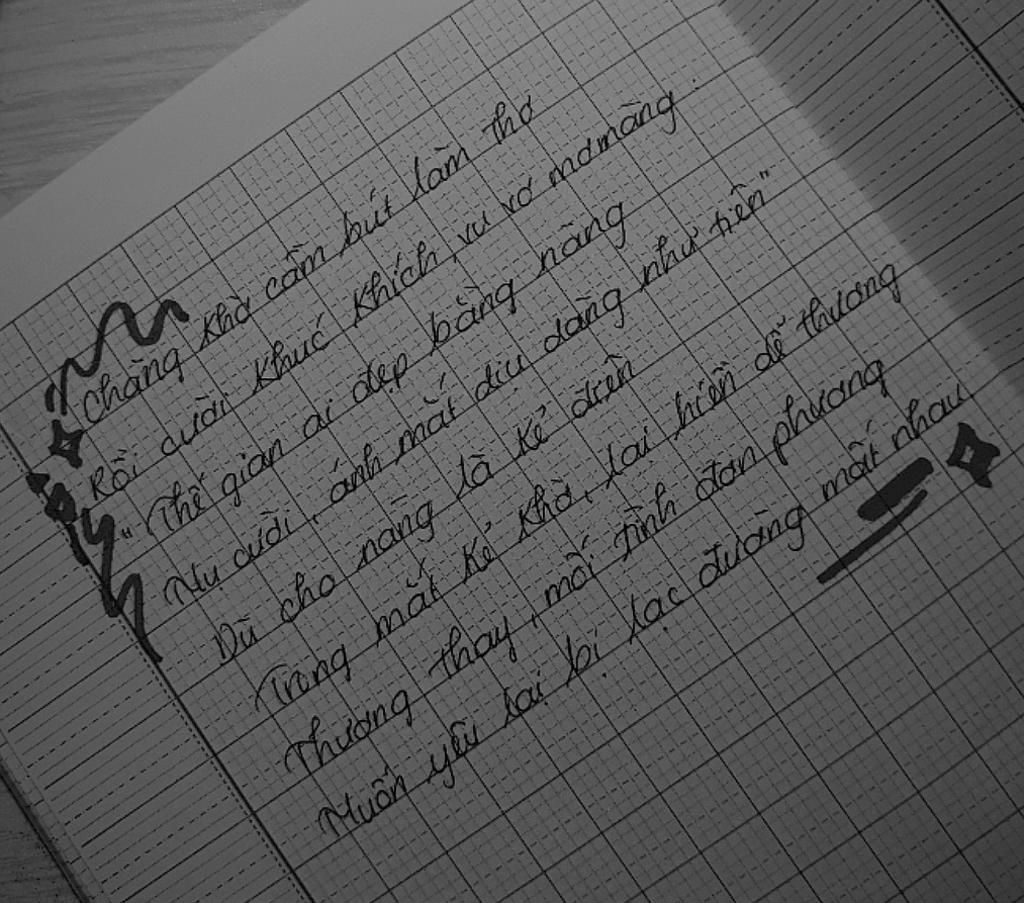 Chàng khờ cầm bút làm thơ
Rồi cười khúc khích, vu vơ mơ màng
"Thế gian ai đẹp bằng nàng
Nụ cười, ánh mắt dịu dàng như tiên"
Dù cho nàng là kẻ điên
Trong mắt kẻ khờ, lại hiền dễ thương
Thương thay, mối tình đơn phương
Muốn yêu lại bị lạc đường mất nhau